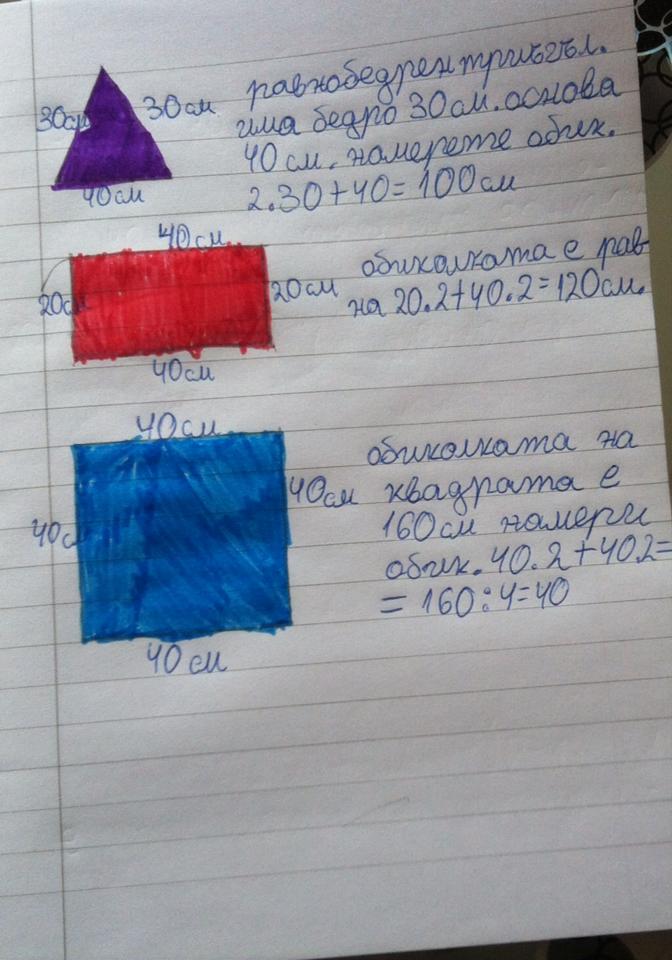 30см 30см
40см
равнобедрен триъгъл.
има бедро 30см. основа
40см. намерете обик.
2.30+40=100см
40см
20см 20см
40см
обиколката е рав
на 20.2+40.2=120см.
40см
40с 40см
40см
обиколката на
квадрата е
160см намери
обик. 40.2+40.2=
= 160:4=40